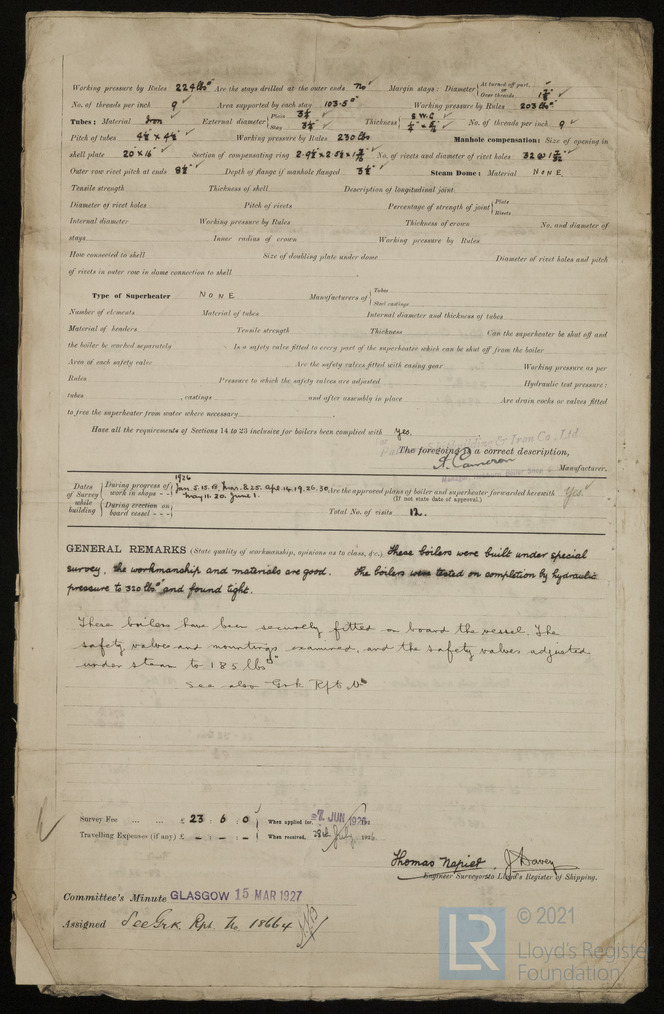 Working pressure by Rules 224 lbs Are the stays drilled at the outer ends No Margin stays: Diameter { At turned off part, or Over threads
No. of threads per inch 9 Area supported by each stay 103.5 Working pressure by Rules 203 lbs
Tubes: Material Iron External diameter { Plain 3¼" Stay 3¼" Thickness { 8 W.G No. of threads per inch 9
Pitch of tubes 4½ × 4½" Working pressure by Rules 230 lbs Manhole compensation: Size of opening in
shell plate 20" × 16" Section of compensating ring No. of rivets and diameter of rivet holes 32
Outer row rivet pitch at ends 8½" Depth of flange if manhole flanged 3½" Steam Dome: Material NONE
Tensile strength Thickness of shell Description of longitudinal joint
Diameter of rivet holes Pitch of rivets Percentage of strength of joint { Plate Rivets
Internal diameter Working pressure by Rules Thickness of crown No. and diameter of
stays Inner radius of crown Working pressure by Rules
How connected to shell Size of doubling plate under dome Diameter of rivet holes and pitch
of rivets in outer row in dome connection to shell
Type of Superheater NONE Manufacturers of { Tubes Steel castings
Number of elements Material of tubes Internal diameter and thickness of tubes
Material of headers Tensile strength Thickness Can the superheater be shut off and
the boiler be worked separately Is a safety valve fitted to every part of the superheater which can be shut off from the boiler
Area of each safety valve Are the safety valves fitted with easing gear Working pressure as per
Rules Pressure to which the safety valves are adjusted Hydraulic test pressure:
tubes , castings and after assembly in place Are drain cocks or valves fitted
to free the superheater from water where necessary
Have all the requirements of Sections 14 to 23 inclusive for boilers been complied with Yes.
Shipbuilding & Iron Co., Ltd.
The foregoing is a correct description,
A. Cameron Manufacturer.
Dates of Survey while building { During progress of work in shops - - 1926 Jan. 5. 15. Mar. 8. 25. Apl. 14. 19. 26. 30. May 11. 20. June 1. Are the approved plans of boiler and superheater forwarded herewith Yes.
(If not state date of approval.)
During erection on board vessel - - - Total No. of visits 12.
GENERAL REMARKS (State quality of workmanship, opinions as to class, &c.) These boilers were built under special
survey, the workmanship and materials are good. The boilers were tested on completion by hydraulic
pressure to 320 lbs and found tight.
These boilers have been securely fitted on board the vessel. The
safety valves and mountings examined, and the safety valves adjusted
under steam to 185 lbs
See also Grk Rpt No
Survey Fee ... ... £ 23 : 6 : 0 When applied for, 2 JUN 1926
Travelling Expenses (if any) £ - : - : - When received, 28th July 1926
Thomas Napier. J Davey
Engineer Surveyors to Lloyd's Register of Shipping.
Committee's Minute GLASGOW 15 MAR 1927
Assigned See Grk. Rpt. No. 18664
LR © 2021
Lloyd's Register
Foundation